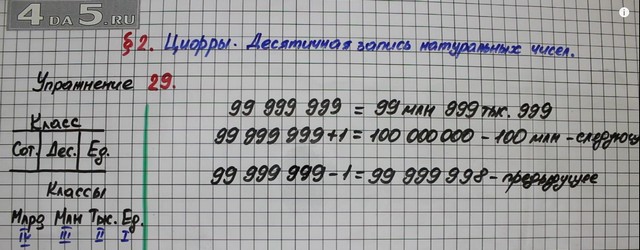 4 DA 5.RU
§2. Цифры. Десятичная запись натуральных чисел.
Упражнение 29.
99 999 999 = 99 млн 999 тыс. 999
Класс
99 999 999+1 = 100 000 000 - 100 млн - следующ
Сот. Дес. Ед.
99 999 999-1 = 99 999 998 - предыдущее
Классы
Млрд Млн Тыс. Ед.
IV III II I